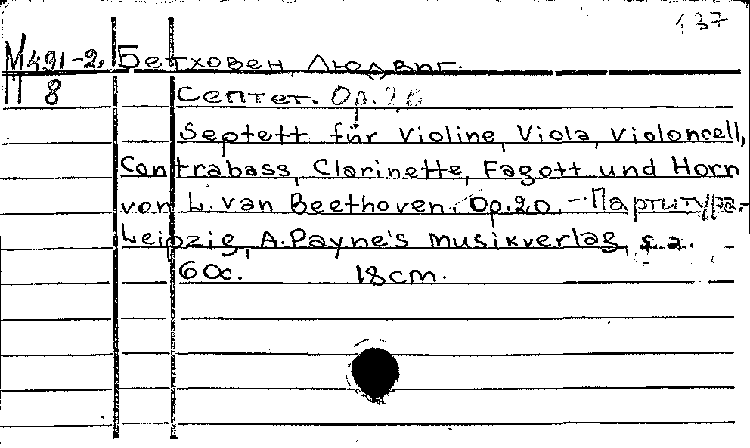 137
М491-2. Бетховен Людвиг.
П 8 Септет. Op.20
Septett für Violine, Viola, Violoncell,
Contrabass, Clarinette, Fagott und Horn
von L. van Beethoven. Op.20. - Партитура.-
Leipzig, A.Payne's musikverlag, s.a.
60с. 18cm.